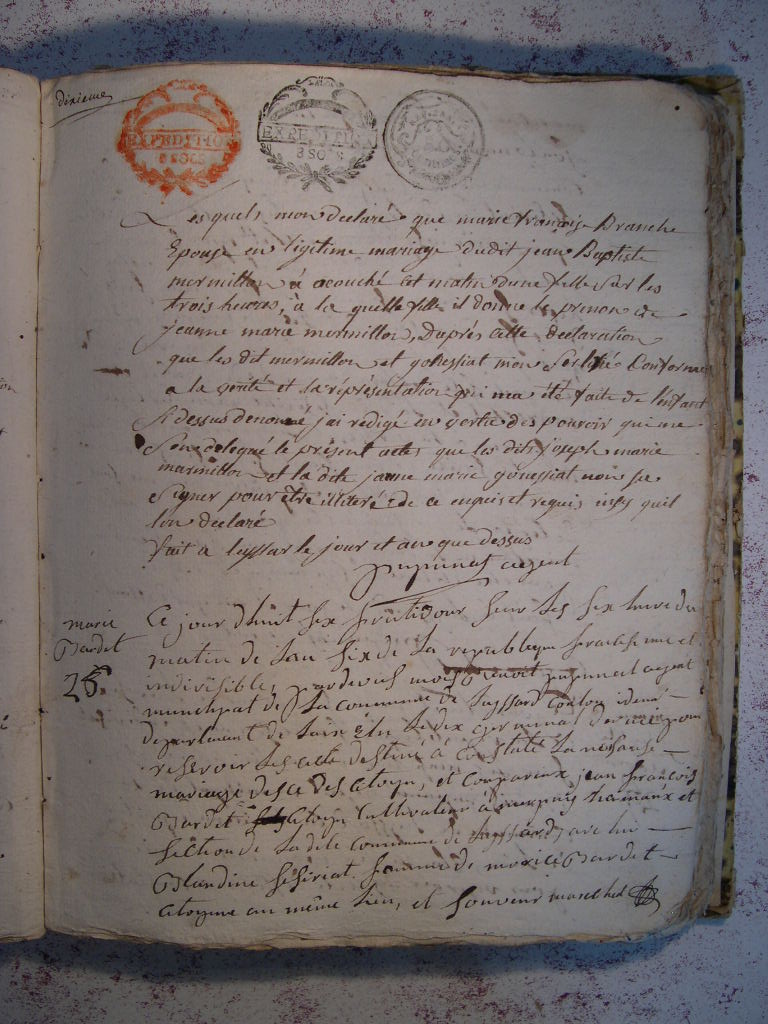 dixieme
EXPEDITION
8 SOLS
EXPEDITION
8 SOLS
Les quels mon declaré que marie françoise Branche
Epouse en legitime mariage dudit jean Baptiste
mermillon à acouché cet matin dune fille sur les
trois heures, à la quelle fille il donne le prenon de
jeanne marie mermillon, Daprés cette declaration
que les dit mermillon et gonessiat mon Conforme
a la verité et la représentation qui ma été faite de lenfant
Si dessus denomé jai redigé en vertu des pouvoir qui me
Son delegué le présent acte que les dits joseph marie
marmillon et la dite jeanne marie gonessiat non su
Signer pour être illiteré de ce enquis et requis insy quil
lon declaré
fait a leyssar le jour et an que dessus
pupunat agent
marie
Bardet
28
Ce jour dhuit six fructidour sur les six heure du
matin de lan six de la republique francaise une et
indivisible, pardevant moi benoit pupunat agent
municipal de la commune de Leyssard canton
departement de lain Elu le dix germinal dernier pour
reservoir les acte destiné à constaté la naisance
mariage deses des citoyen, et compareux jean françois
Bardet citoyen Cultivateur à hameaux et
section de la dite commune de Leyssard, avec lui
Blandine femme de Bardet
citoyenne au même lieu, et